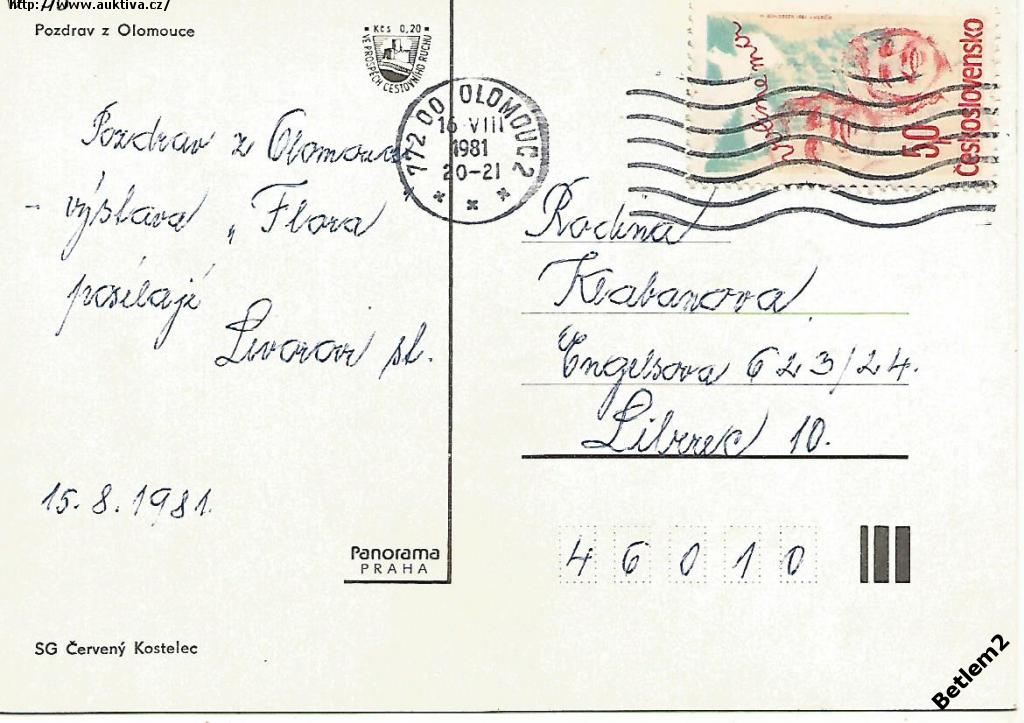 http://www.auktiva.cz/
Pozdrav z Olomouce
Kčs 0,20
VE PROSPĚCH CESTOVNÍHO RUCHU
772 00 OLOMOUC 2
16 VIII
1981
20-21
Československo
50
Pozdrav z Olomouce
- výstava „ Flora
posílají
st.
15. 8. 1981.
Rodina
Klabanova
Engelsova 623/24.
Liberec 10.
46010
Panorama
PRAHA
SG Červený Kostelec
Betlem2